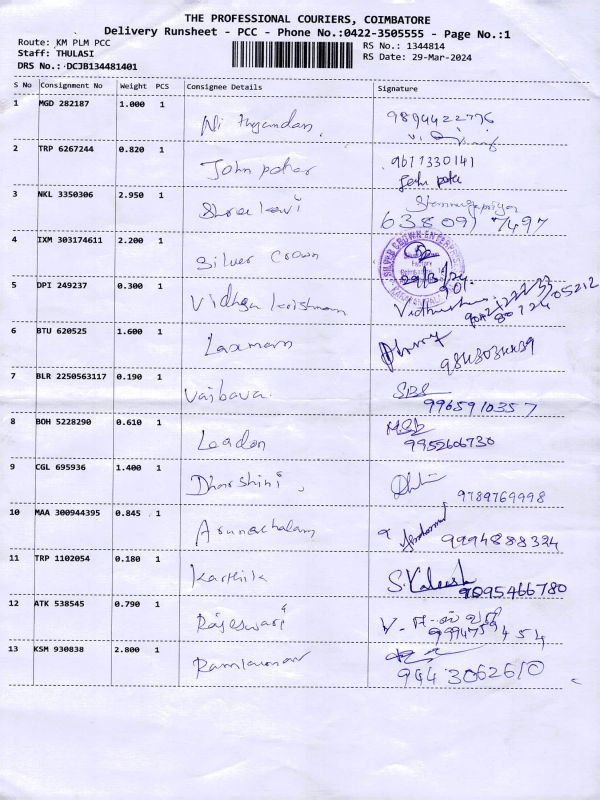 THE PROFESSIONAL COURIERS, COIMBATORE
Delivery Runsheet - PCC - Phone No.:0422-3505555 - Page No.:1
Route: KM PLM PCC
RS No.: 1344814
Staff: THULASI
RS Date: 29-Mar-2024
DRS No.: DCJB134481401
S No Consignment No Weight PCS Consignee Details Signature
1 MGD 282187 1.000 1
2 TRP 6267244 0.820 1 John peter 9677330141
3 NKL 3350306 2.950 1 638091 7497
4 IXM 303174611 2.200 1 Silver Crown
5 DPI 249237 0.300 1 Vidhya krishnan
6 BTU 620525 1.600 1 Laxmam
7 BLR 2250563117 0.190 1 Vaibava 9965910357
8 BOH 5228290 0.610 1 Leadon 9952606730
9 CGL 695936 1.400 1 Dharshini 9789769998
10 MAA 300944395 0.845 1 Arunachalam 9994888324
11 TRP 1102054 0.180 1 Karthik 9095466780
12 ATK 538545 0.790 1 Rajeswari 9994759454
13 KSM 930838 2.800 1 9443062610